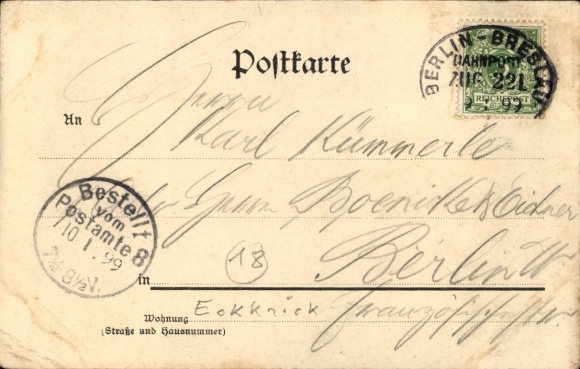 Postkarte
BERLIN-BRESLAU
BAHNPOST
ZUG 221
REICHSPOST
Herrn
An Karl Kümmerle
Boenicke & Eichner
Bestellt
vom
Postamte 8
10 1. 99
7½-8½V.
18
in Berlin W
Eckknick Französische
Wohnung
(Straße und Hausnummer)